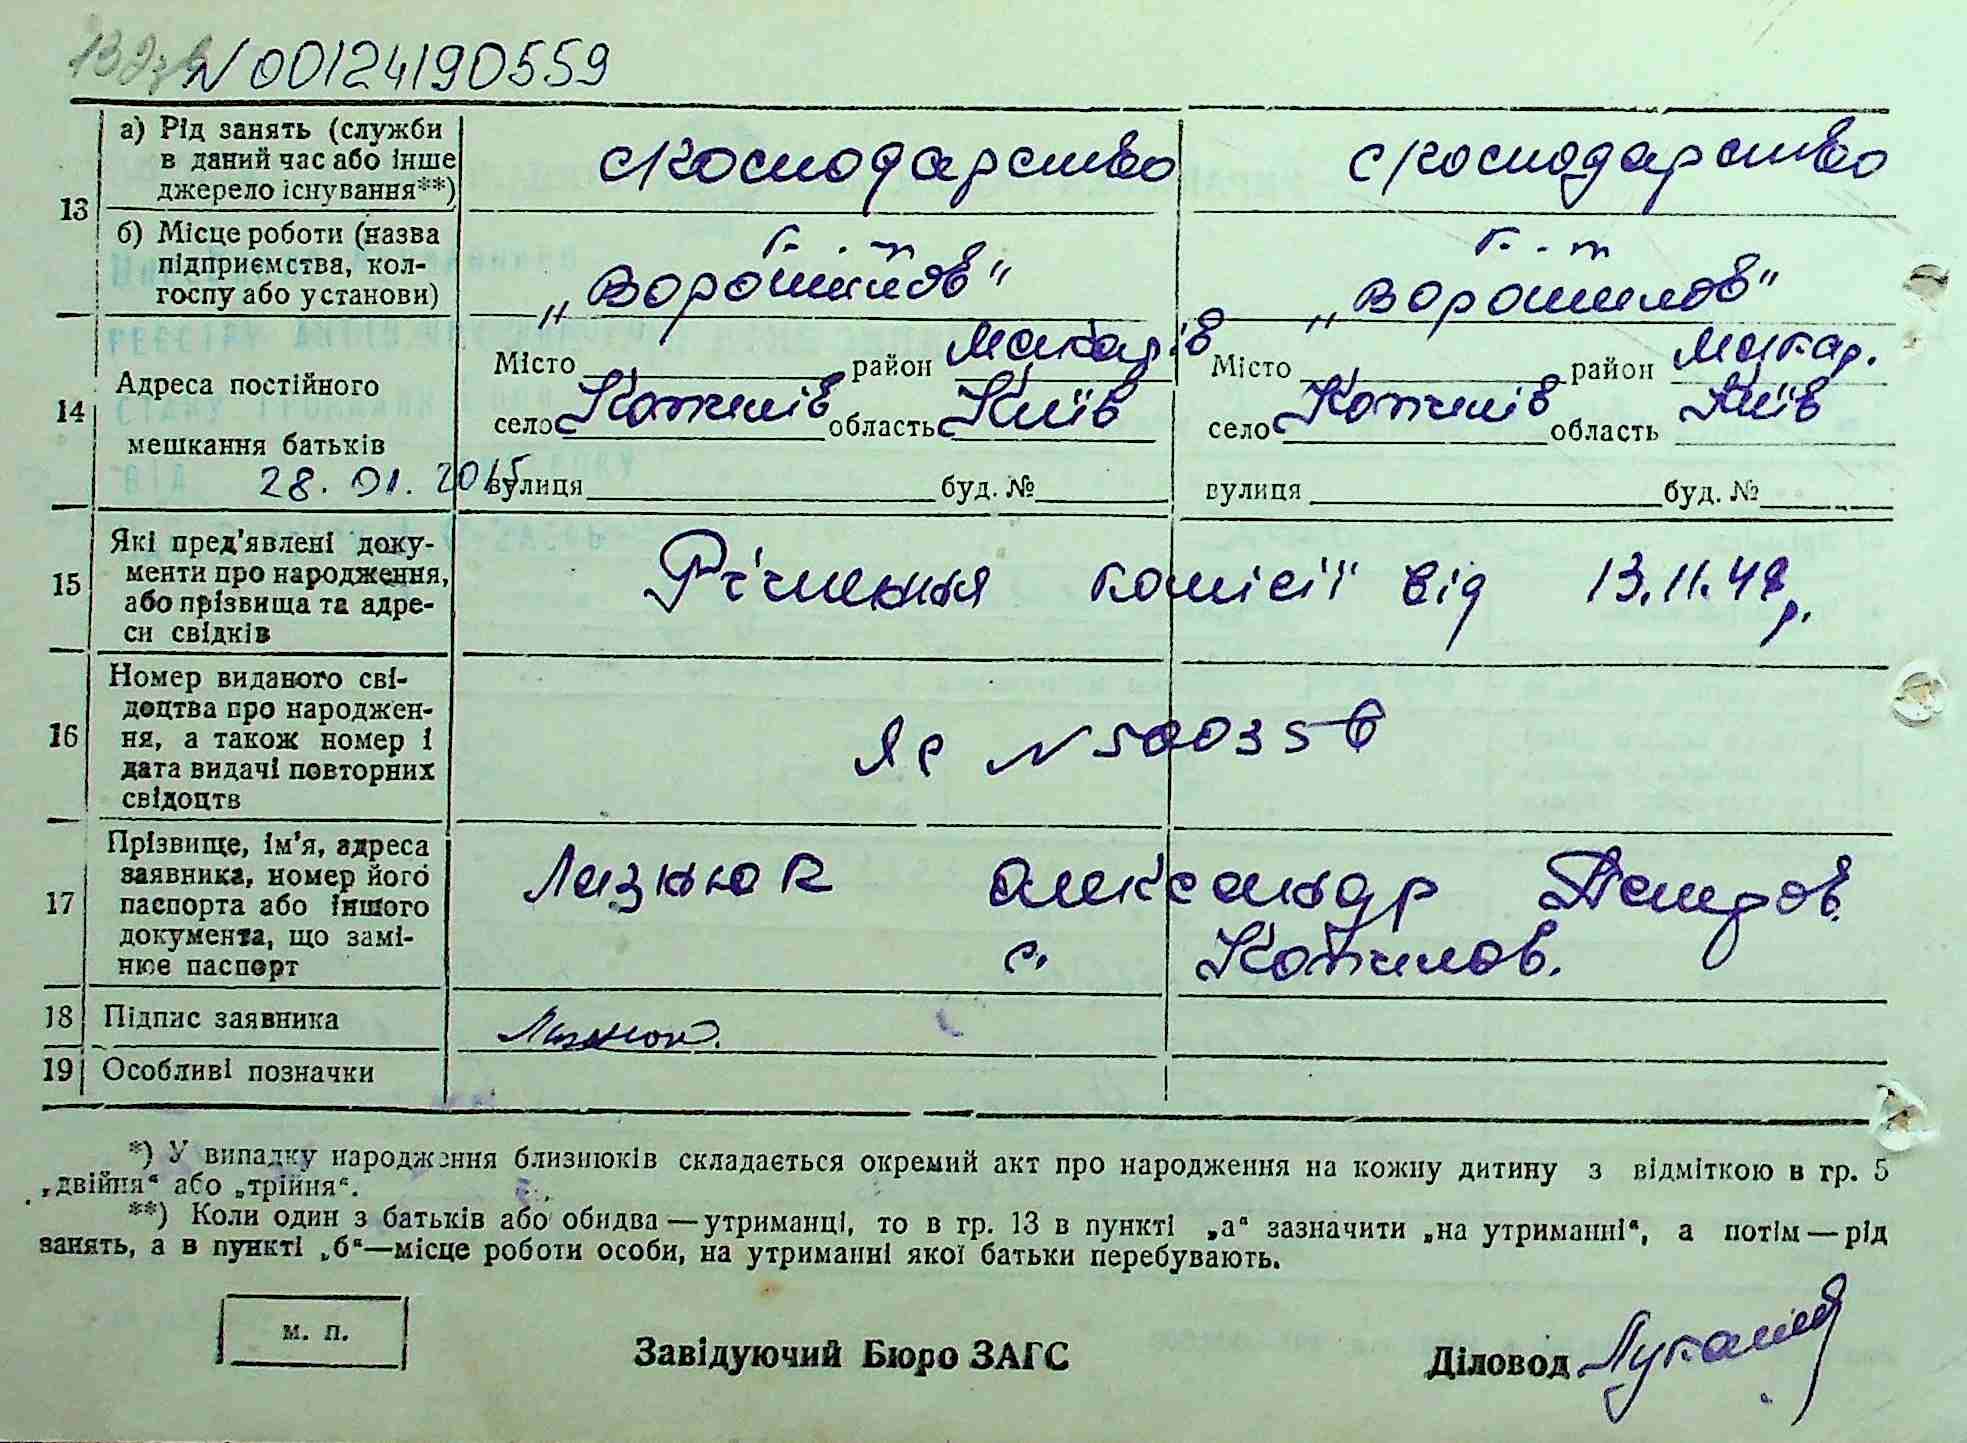 N 00124190559
13
а) Рід занять (служби
в даний час або інше
джерело існування**)
с/господарство
с/господарство
б) Місце роботи (назва
підприємства, кол-
госпу або установи)
к-т
„Ворошилов“
к-т
„Ворошилов“
14
Адреса постійного
мешкання батьків
28.01.2015
Місто район Макарів
село Копилів область Київ
вулиця буд. №
Місто район Макар.
село Копилів область Київ
вулиця буд. №
15
Які пред'явлені доку-
менти про народження,
або прізвища та адре-
си свідків
Рішення комісії від 13.11.48 р.
16
Номер виданого сві-
доцтва про народжен-
ня, а також номер і
дата видачі повторних
свідоцтв
ЯС N 500356
17
Прізвище, ім'я, адреса
заявника, номер його
паспорта або іншого
документа, що замі-
нює паспорт
Лизнюк Олександр Петров.
с. Копилов.
18
Підпис заявника
Лизнюк
19
Особливі позначки
*) У випадку народження близнюків складається окремий акт про народження на кожну дитину з відміткою в гр. 5
„двійня“ або „трійня“.
**) Коли один з батьків або обидва — утриманці, то в гр. 13 в пункті „а“ зазначити „на утриманні“, а потім — рід
занять, а в пункті „б“—місце роботи особи, на утриманні якої батьки перебувають.
м. п.
Завідуючий Бюро ЗАГС
Діловод